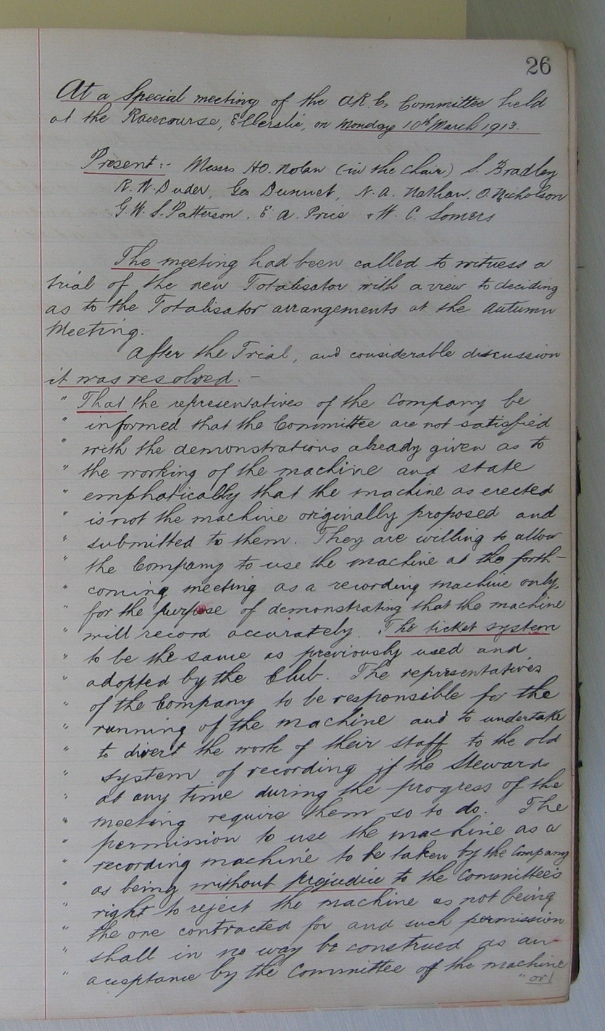 26
At a Special meeting of the A.R.C. Committee held
at the Racecourse, Ellerslie, on Monday 10th March 1913.
Present:- Messrs H.O. Nolan (in the chair) S. Bradley
R.W. Duder, Geo Dunnet, N.A. Nathan, O. Nicholson
G.W.S. Patterson, E.A. Price & H.C. Somers
The meeting had been called to witness a
trial of the new Totalisator with a view to deciding
as to the Totalisator arrangements at the Autumn
Meeting.
After the Trial, and considerable discussion
it was resolved:-
" That the representatives of the Company be
" informed that the Committee are not satisfied
" with the demonstrations already given as to
" the working of the machine and state
" emphatically that the machine as erected
" is not the machine originally proposed and
" submitted to them. They are willing to allow
" the Company to use the machine at the forth-
" coming meeting as a recording machine only,
" for the purpose of demonstrating that the machine
" will record accurately. The ticket system
" to be the same as previously used and
" adopted by the Club. The representatives
" of the Company to be responsible for the
" running of the machine and to undertake
" to divert the work of their staff to the old
" system of recording if the Stewards
" at any time during the progress of the
" meeting require them so to do. The
" permission to use the machine as a
" recording machine to be taken by the Company
" as being without prejudice to the Committee's
" right to reject the machine as not being
" the one contracted for and such permission
" shall in no way be construed as an
" acceptance by the Committee of the machine
" or/